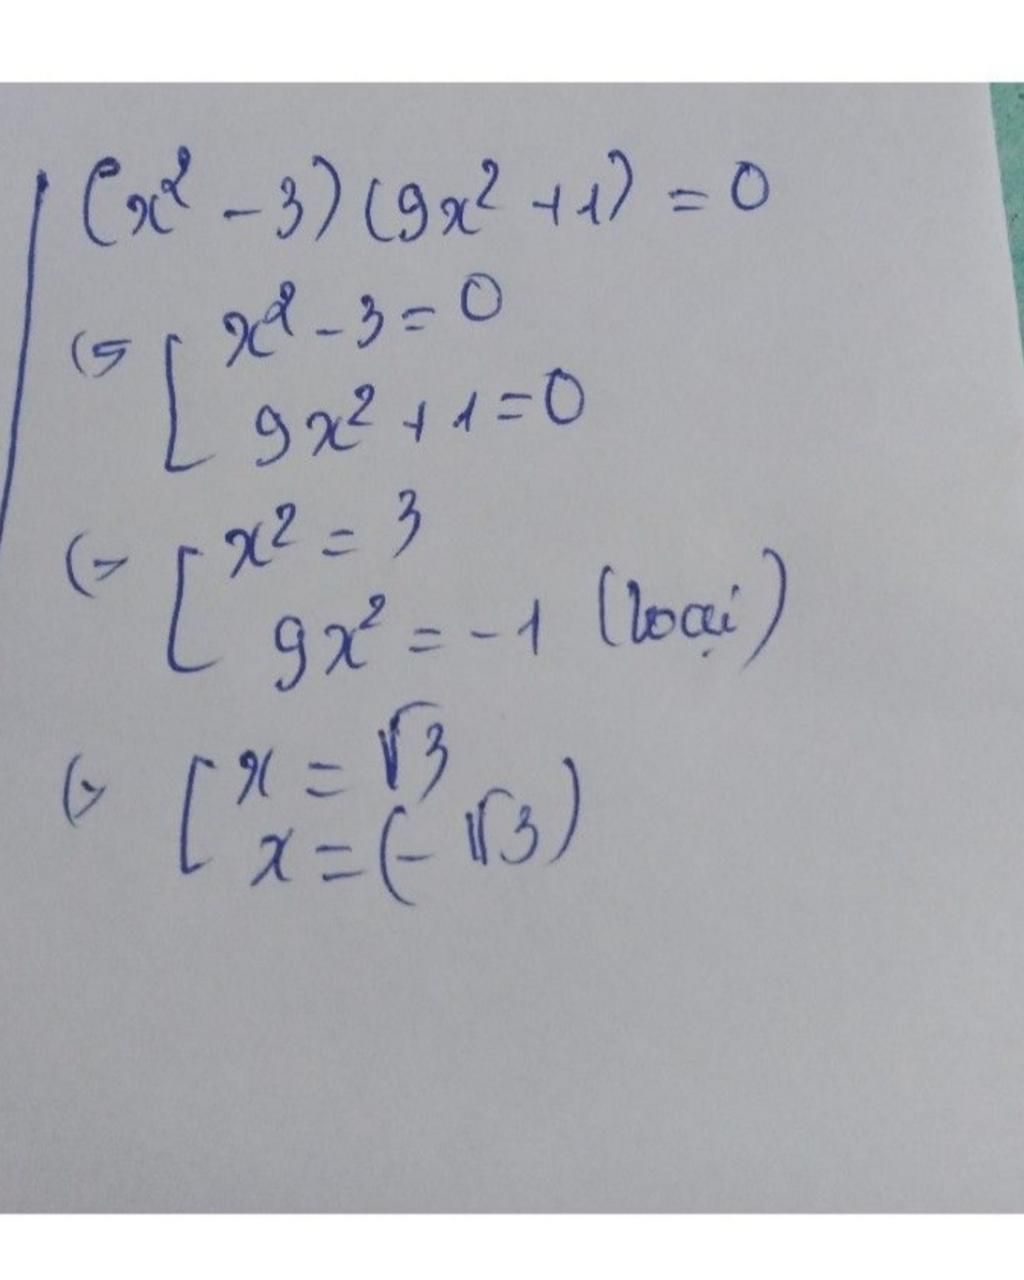 (x² - 3)(9x² + 1) = 0
(=> [ x² - 3 = 0
9x² + 1 = 0
(=> [ x² = 3
9x² = -1 (loại)
(=> [ x = √3
x = (-√3)